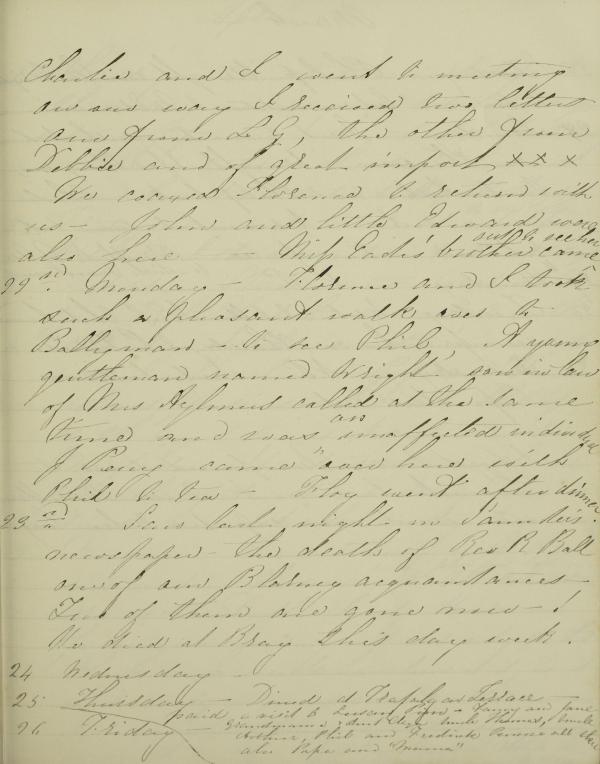 Charlie and I went to meeting
on our way I received two letters
one from L G, the other from
Debbie and of great import x x x
We coaxed Florence to return with
us - John and little Edward were
also here - Miss Eade's brother came
out to see her
22nd. Monday - Florence and I took
such a pleasant walk over to
Ballyman - to see Phil, A young
gentleman named Wright son in law
of Mrs Aylmers called at the same
time and was an unaffected individual
J Penny came over here with
Phil to tea - Flory went after dinner.
23rd Saw last night in Saunders'
newspaper the death of Rev R Ball
one of our Blarney acquaintances -
Two of them are gone now - !
He died at Bray this day week.
24 Wednesday -
25 Thursday - Dined at Trafalgar Terrace
paid a visit to - Fanny and Jane
26 Friday - Grandmama & Aunt Uncle Thomas, Uncle
Arthur, Phil and Fredrick all there
also Papa and "Mama"